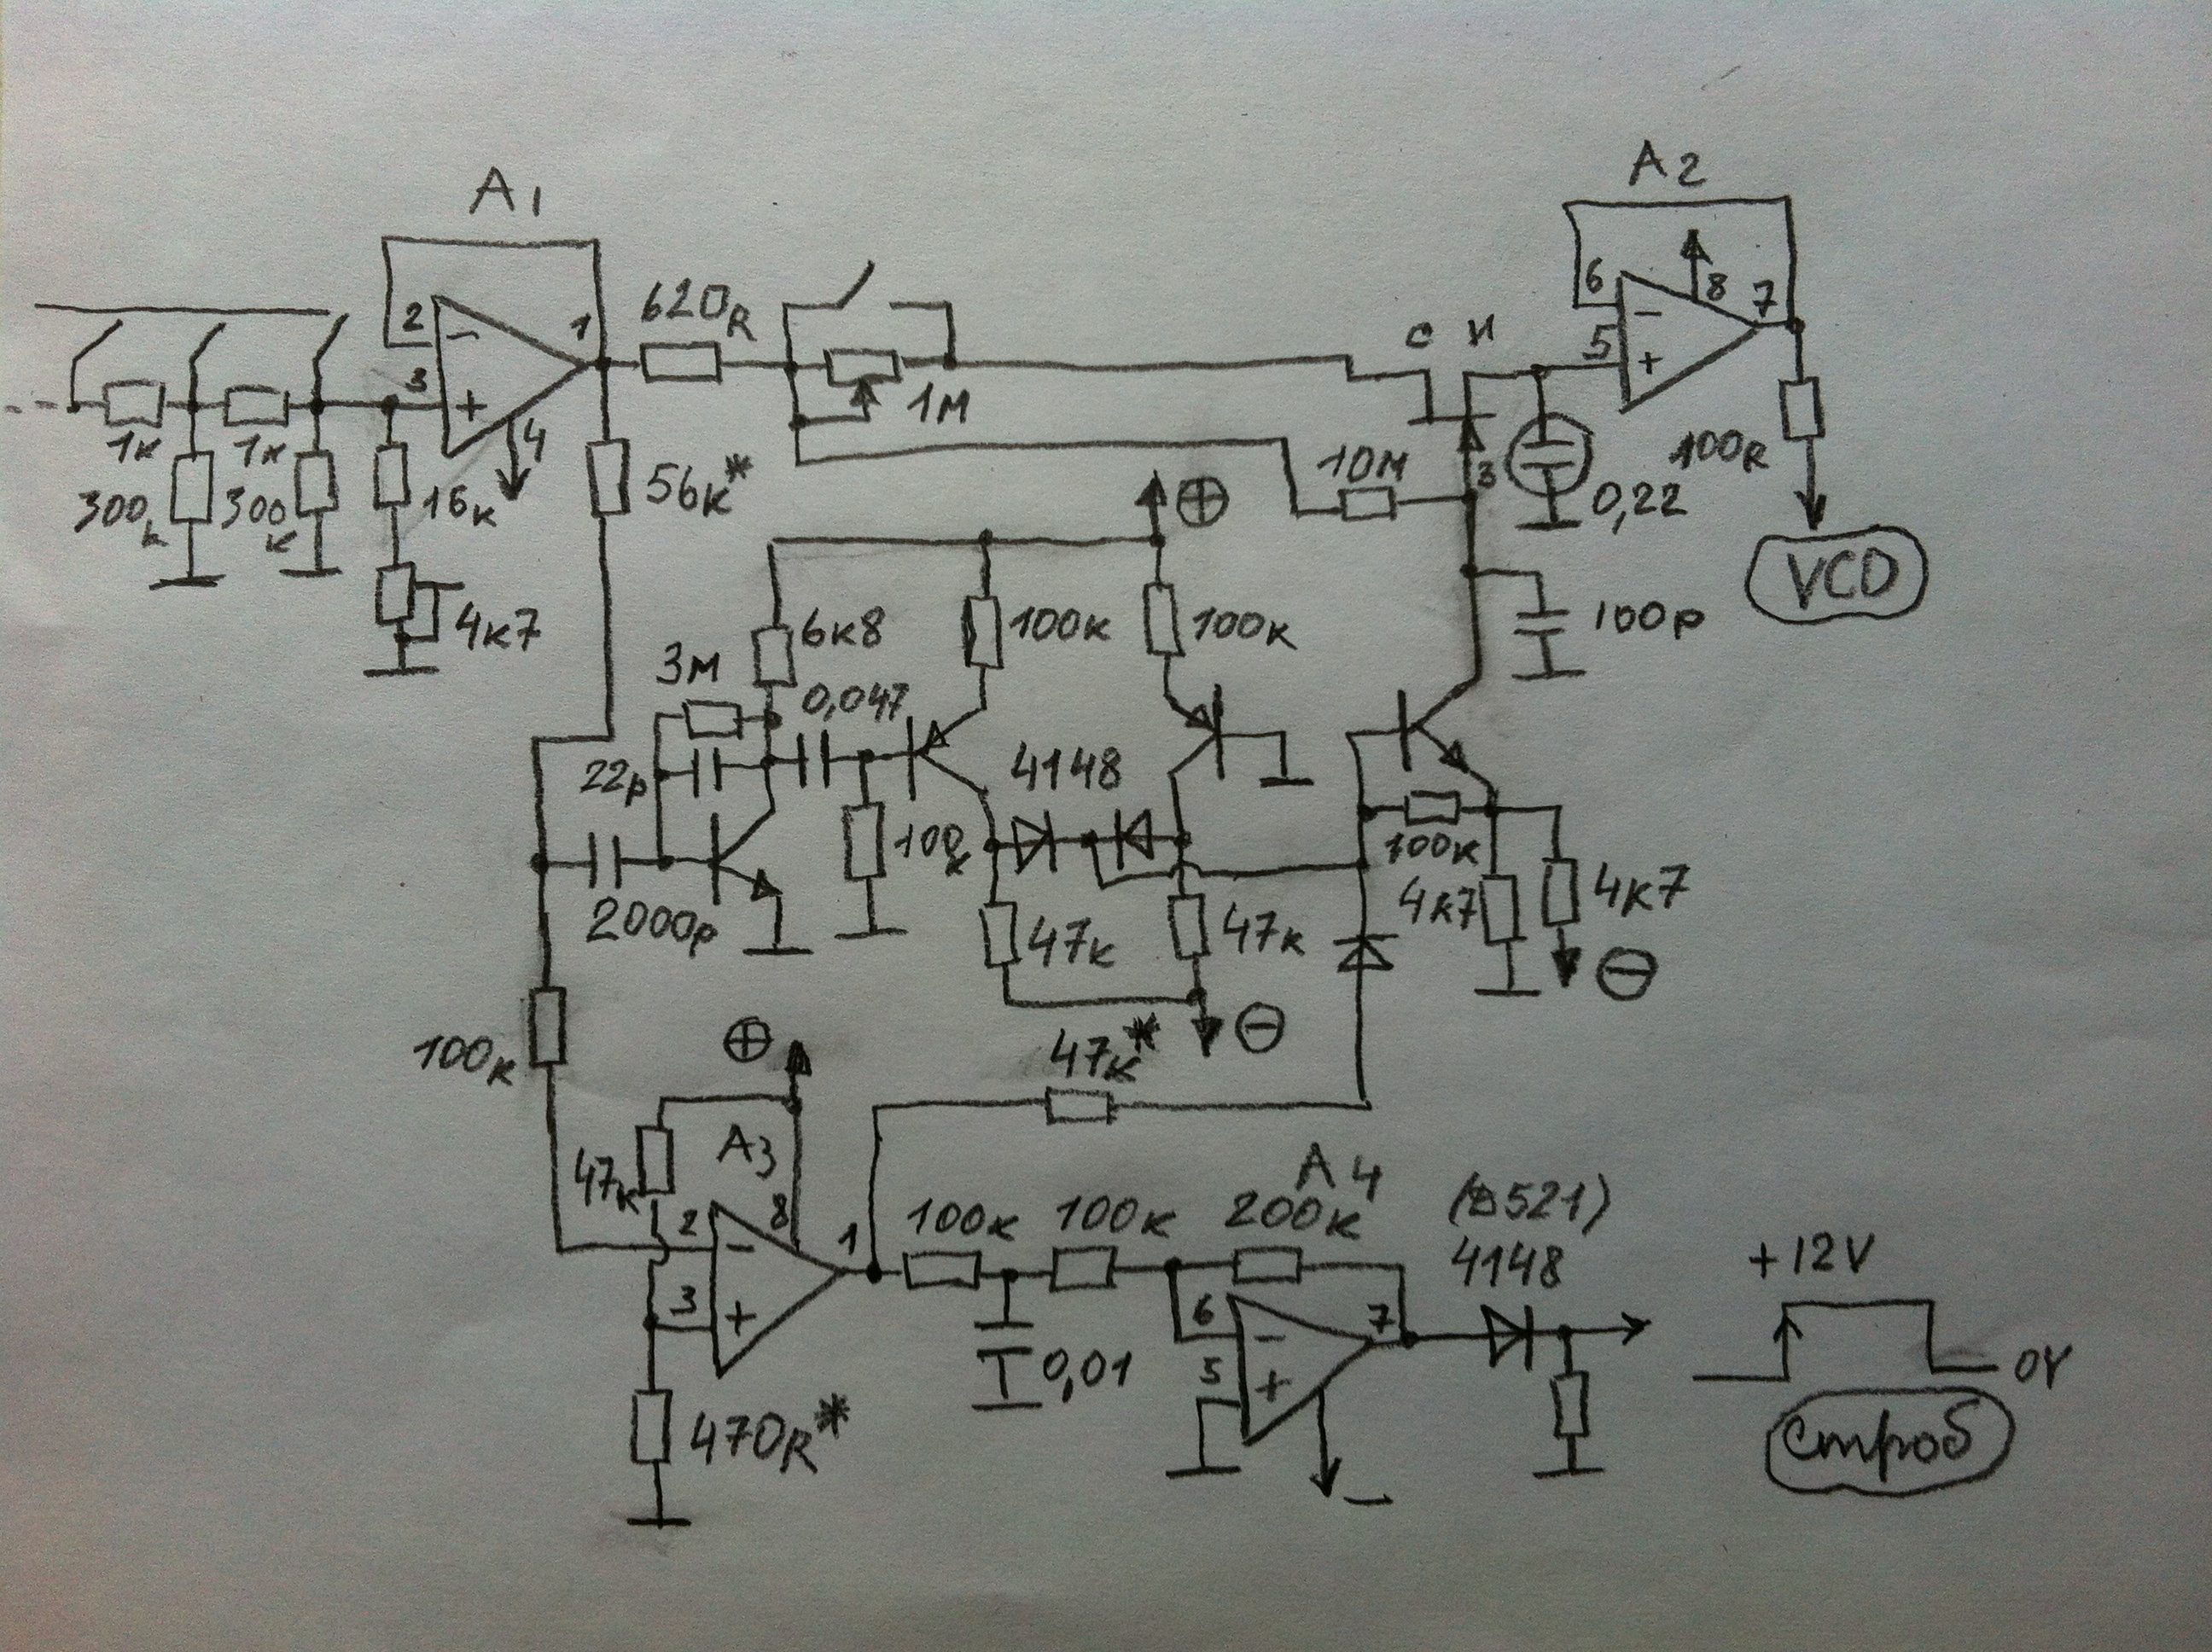 A1
A2
2
−
3
+
1
4
620R
1M
56к*
1к
1к
300к
300к
16к
4к7
С И
З
10М
6
−
8
7
5
+
0,22
100R
VCO
100p
⊕
6к8
100к
100к
3М
0,047
22p
2000p
100к
4148
47к
47к
⊖
100к
4к7
4к7
⊖
100к
⊕
47к
A3
8
2
−
3
+
1
470R*
47к*
100к
100к
0,01
A4
200к
6
−
5
+
7
−
(Д521)
4148
+12V
0V
строб